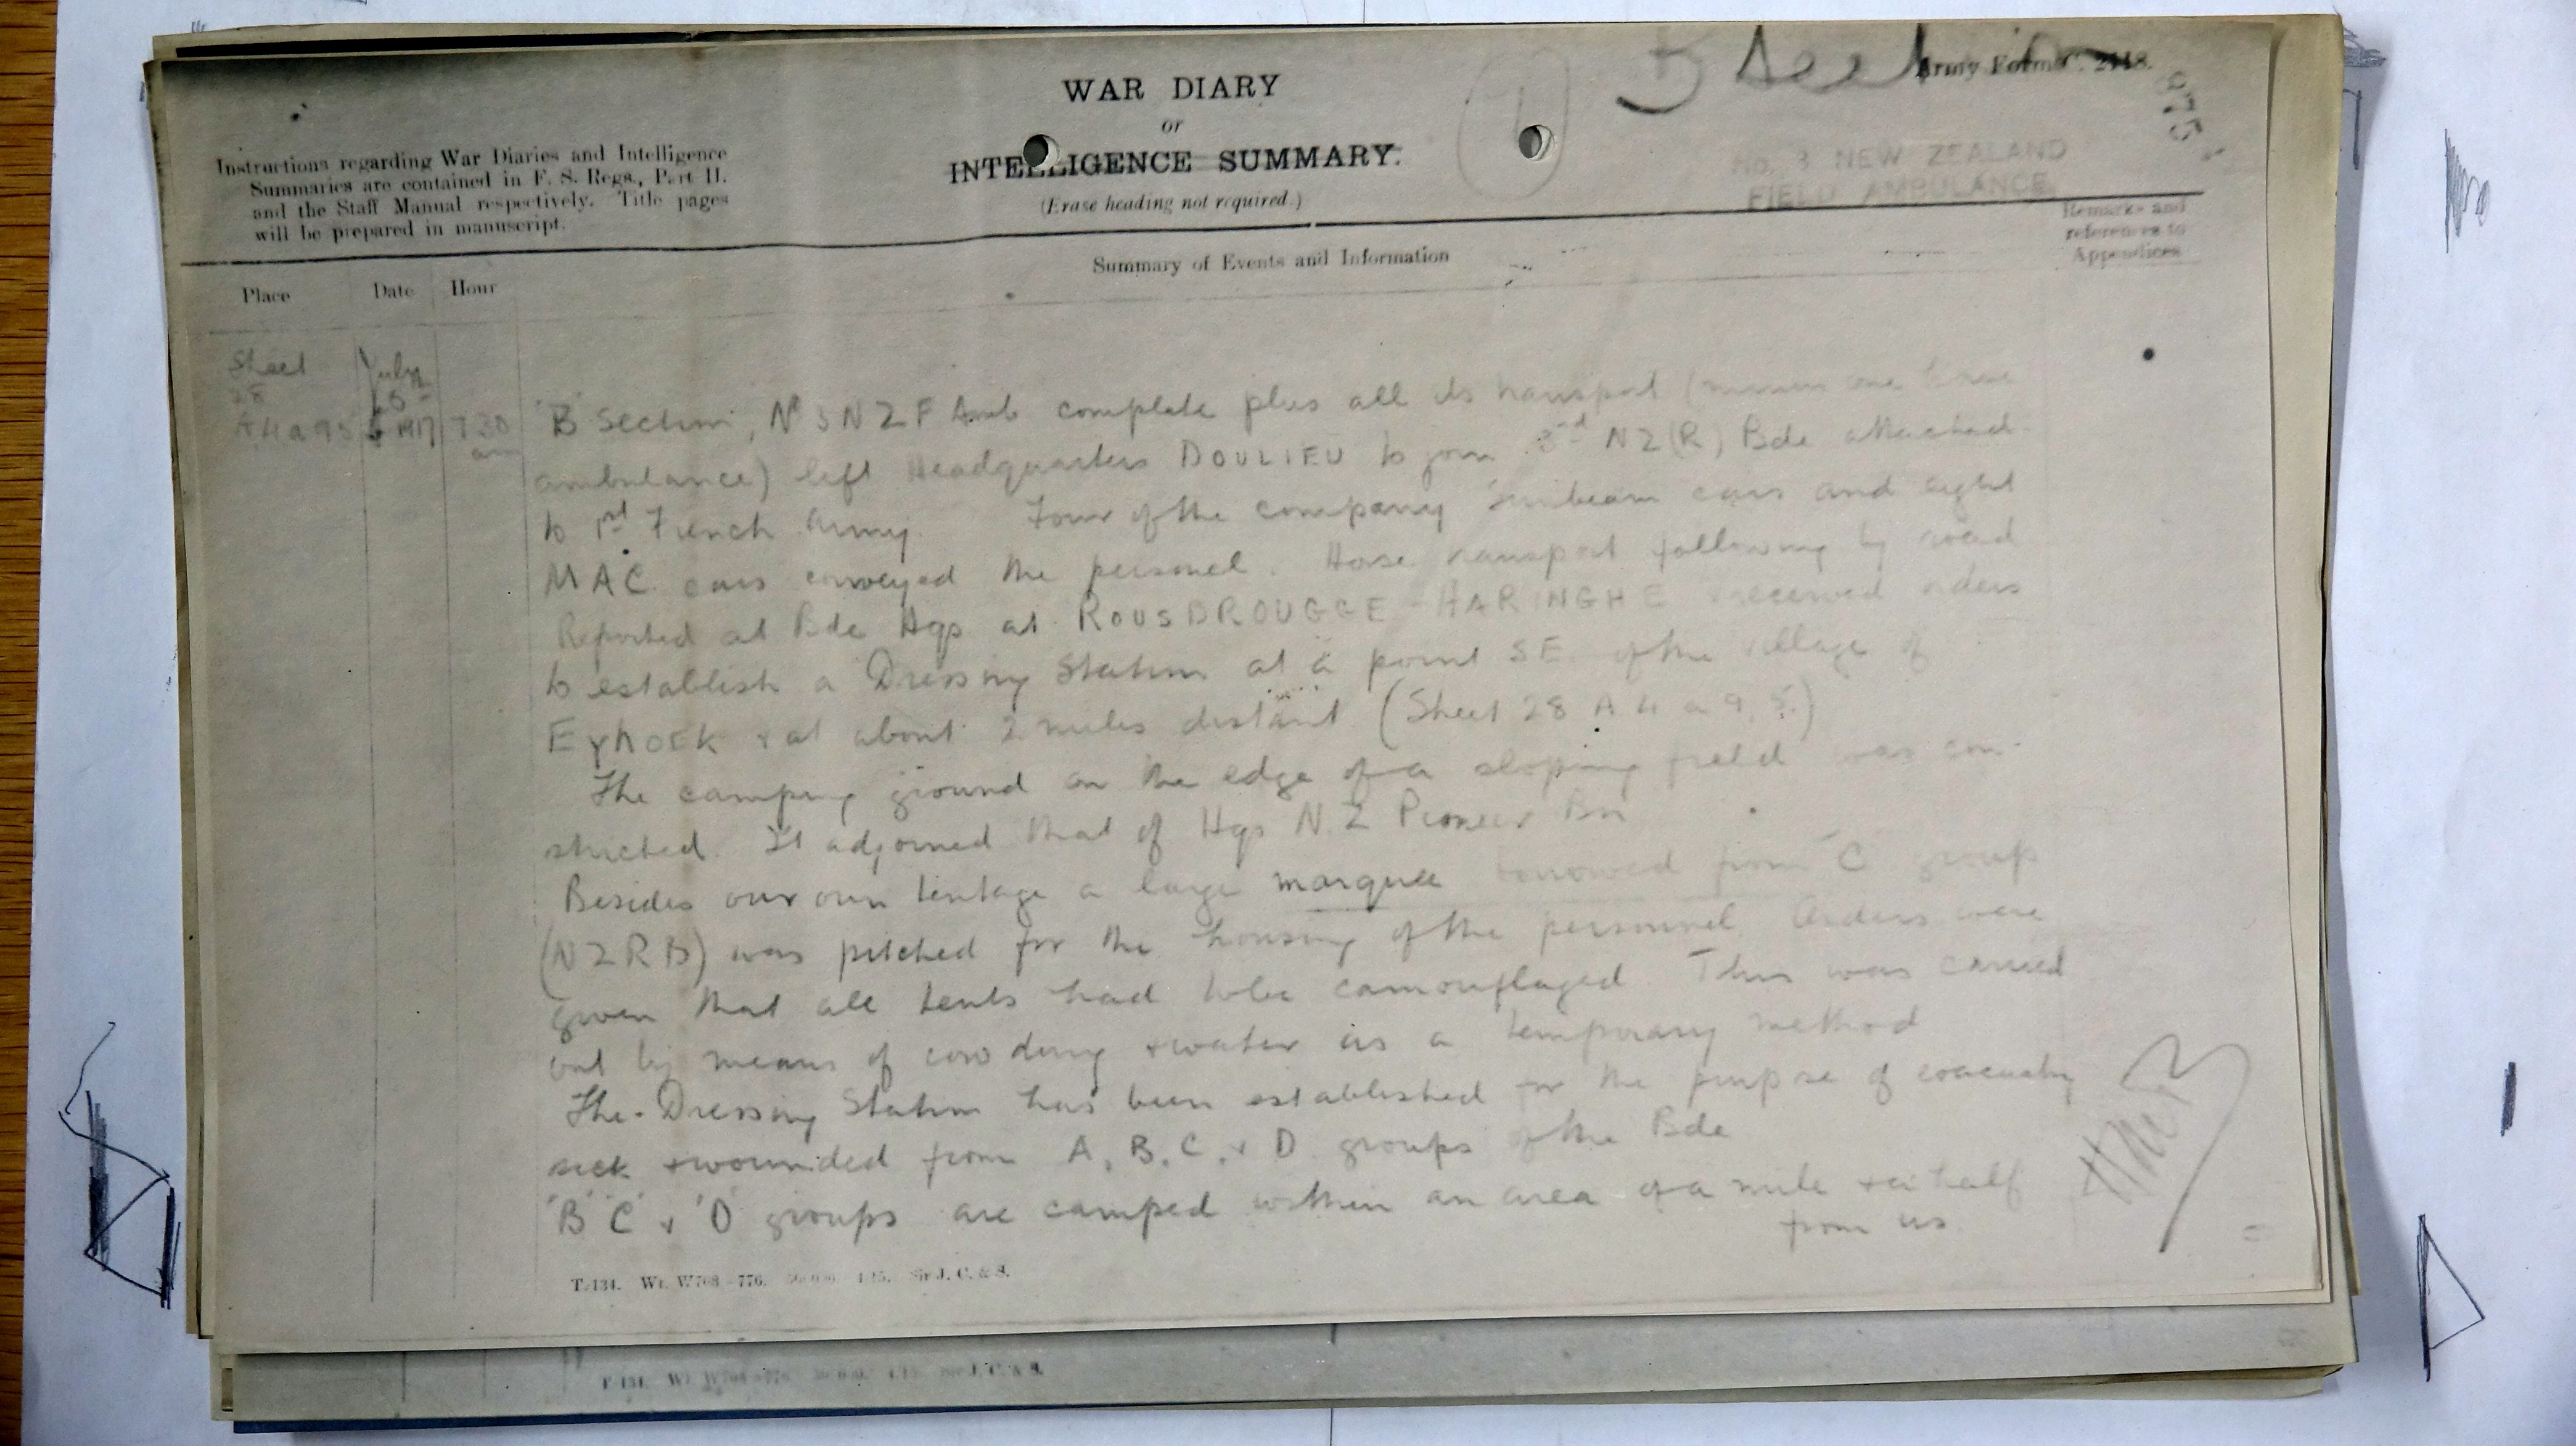 WAR DIARY
or
INTELLIGENCE SUMMARY.
(Erase heading not required.)
Army Form C. 2118.
Instructions regarding War Diaries and Intelligence
Summaries are contained in F. S. Regs., Part II.
and the Staff Manual respectively. Title pages
will be prepared in manuscript.
No. 3 NEW ZEALAND
FIELD AMBULANCE
Remarks and
references to
Appendices
Summary of Events and Information
Place Date Hour
Sheet July
28 15
A 4 a 9 5 1917 7 30
am
'B' Section, No 3 N Z F Amb complete plus all its transport (minus one horse
ambulance) left Headquarters DOULIEU to join 3rd N Z (R) Bde attached
to 1st French Army. Four of the company Sunbeam cars and eight
M A C cars conveyed the personel. Horse transport following by road
Reported at Bde Hqs at ROUSBROUGGE - HARINGHE received orders
to establish a Dressing Station at a point SE. of the village of
EYKOEK & at about 2 miles distant (Sheet 28 A 4 a 9. 5.)
The camping ground on the edge of a sloping field was con-
stricted. It adjoined that of Hqs N. Z Pioneer Bn
Besides our own tentage a large marquee borrowed from 'C' group
(N Z R B) was pitched for the housing of the personnel. Orders were
given that all tents had to be camouflaged. This was carried
out by means of cow dung & water as a temporary method
The Dressing Station has been established for the purpose of evacuating
sick & wounded from A, B, C, & D groups of the Bde
'B' 'C' & 'D' groups are camped within an area of a mile & a half
from us
T.134. Wt. W708-776. Sir J. C. & S.